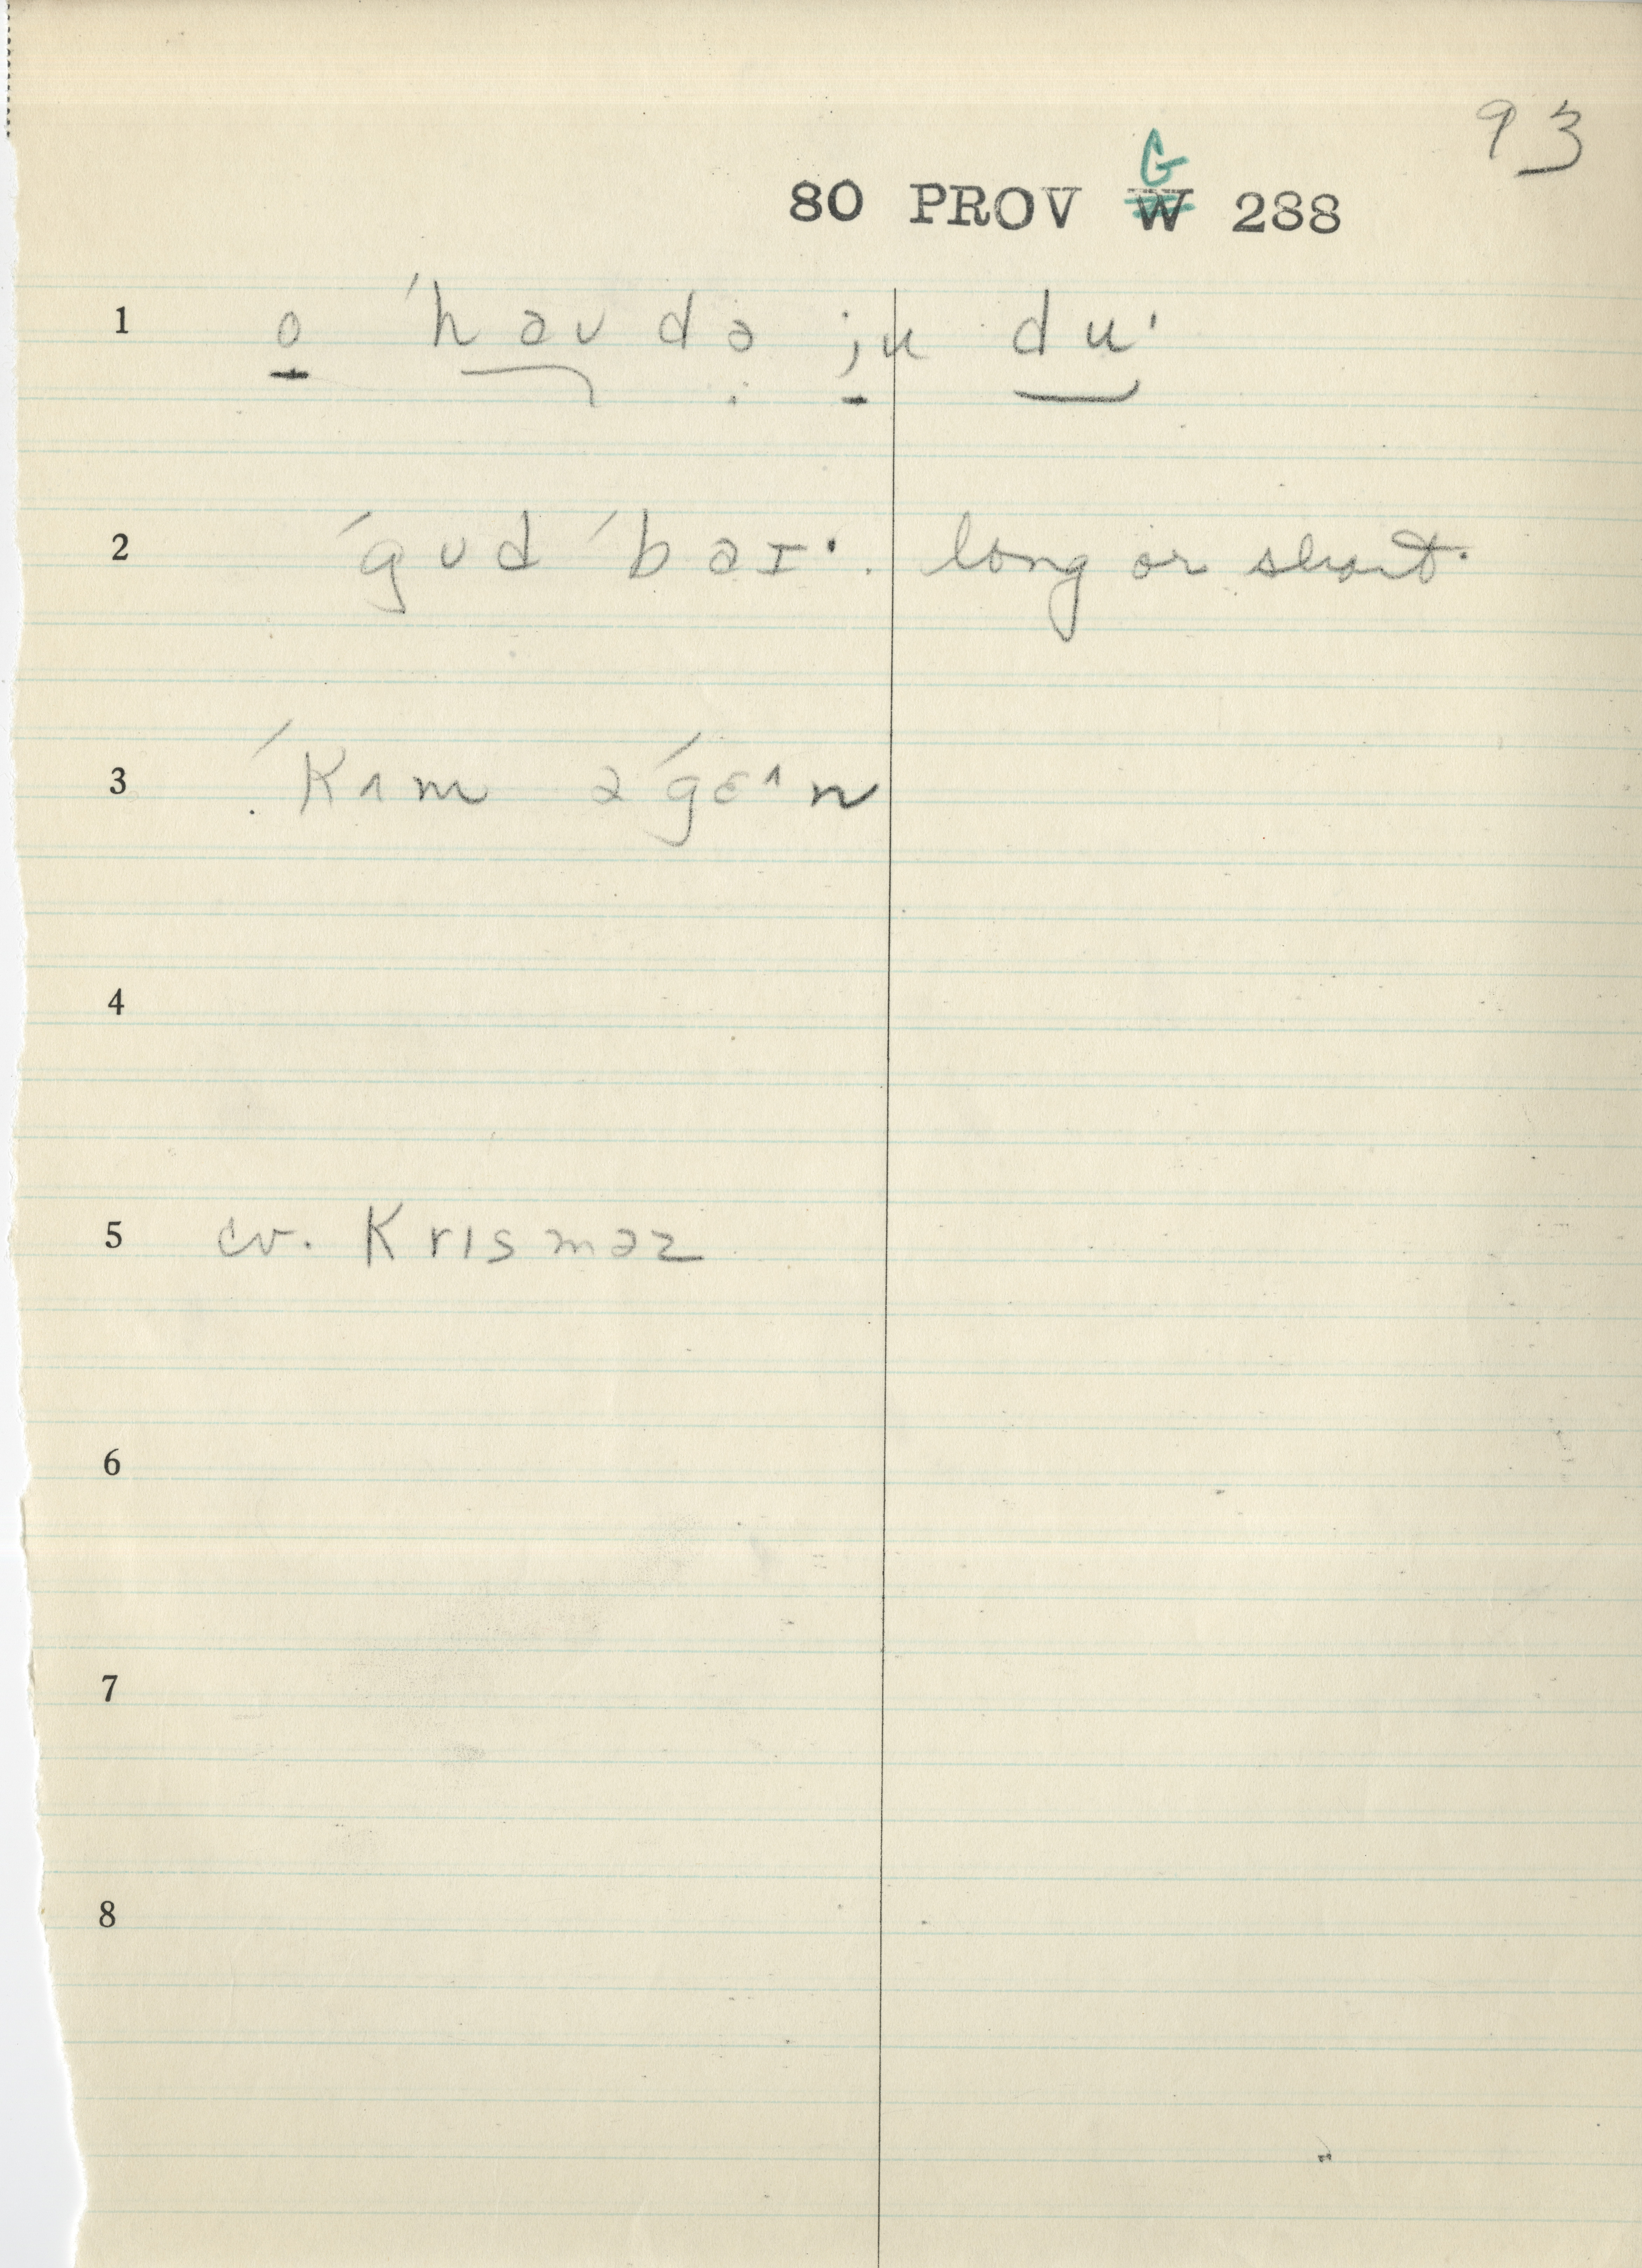 93
G
80 PROV W 288
1 o ˈhaʊ də ju duˑ
2 ˈgʊd ˈbaɪˑ. long or short.
3 ˈKʌm əˈgɛ^n
4
5 cv. Krɪsməz
6
7
8